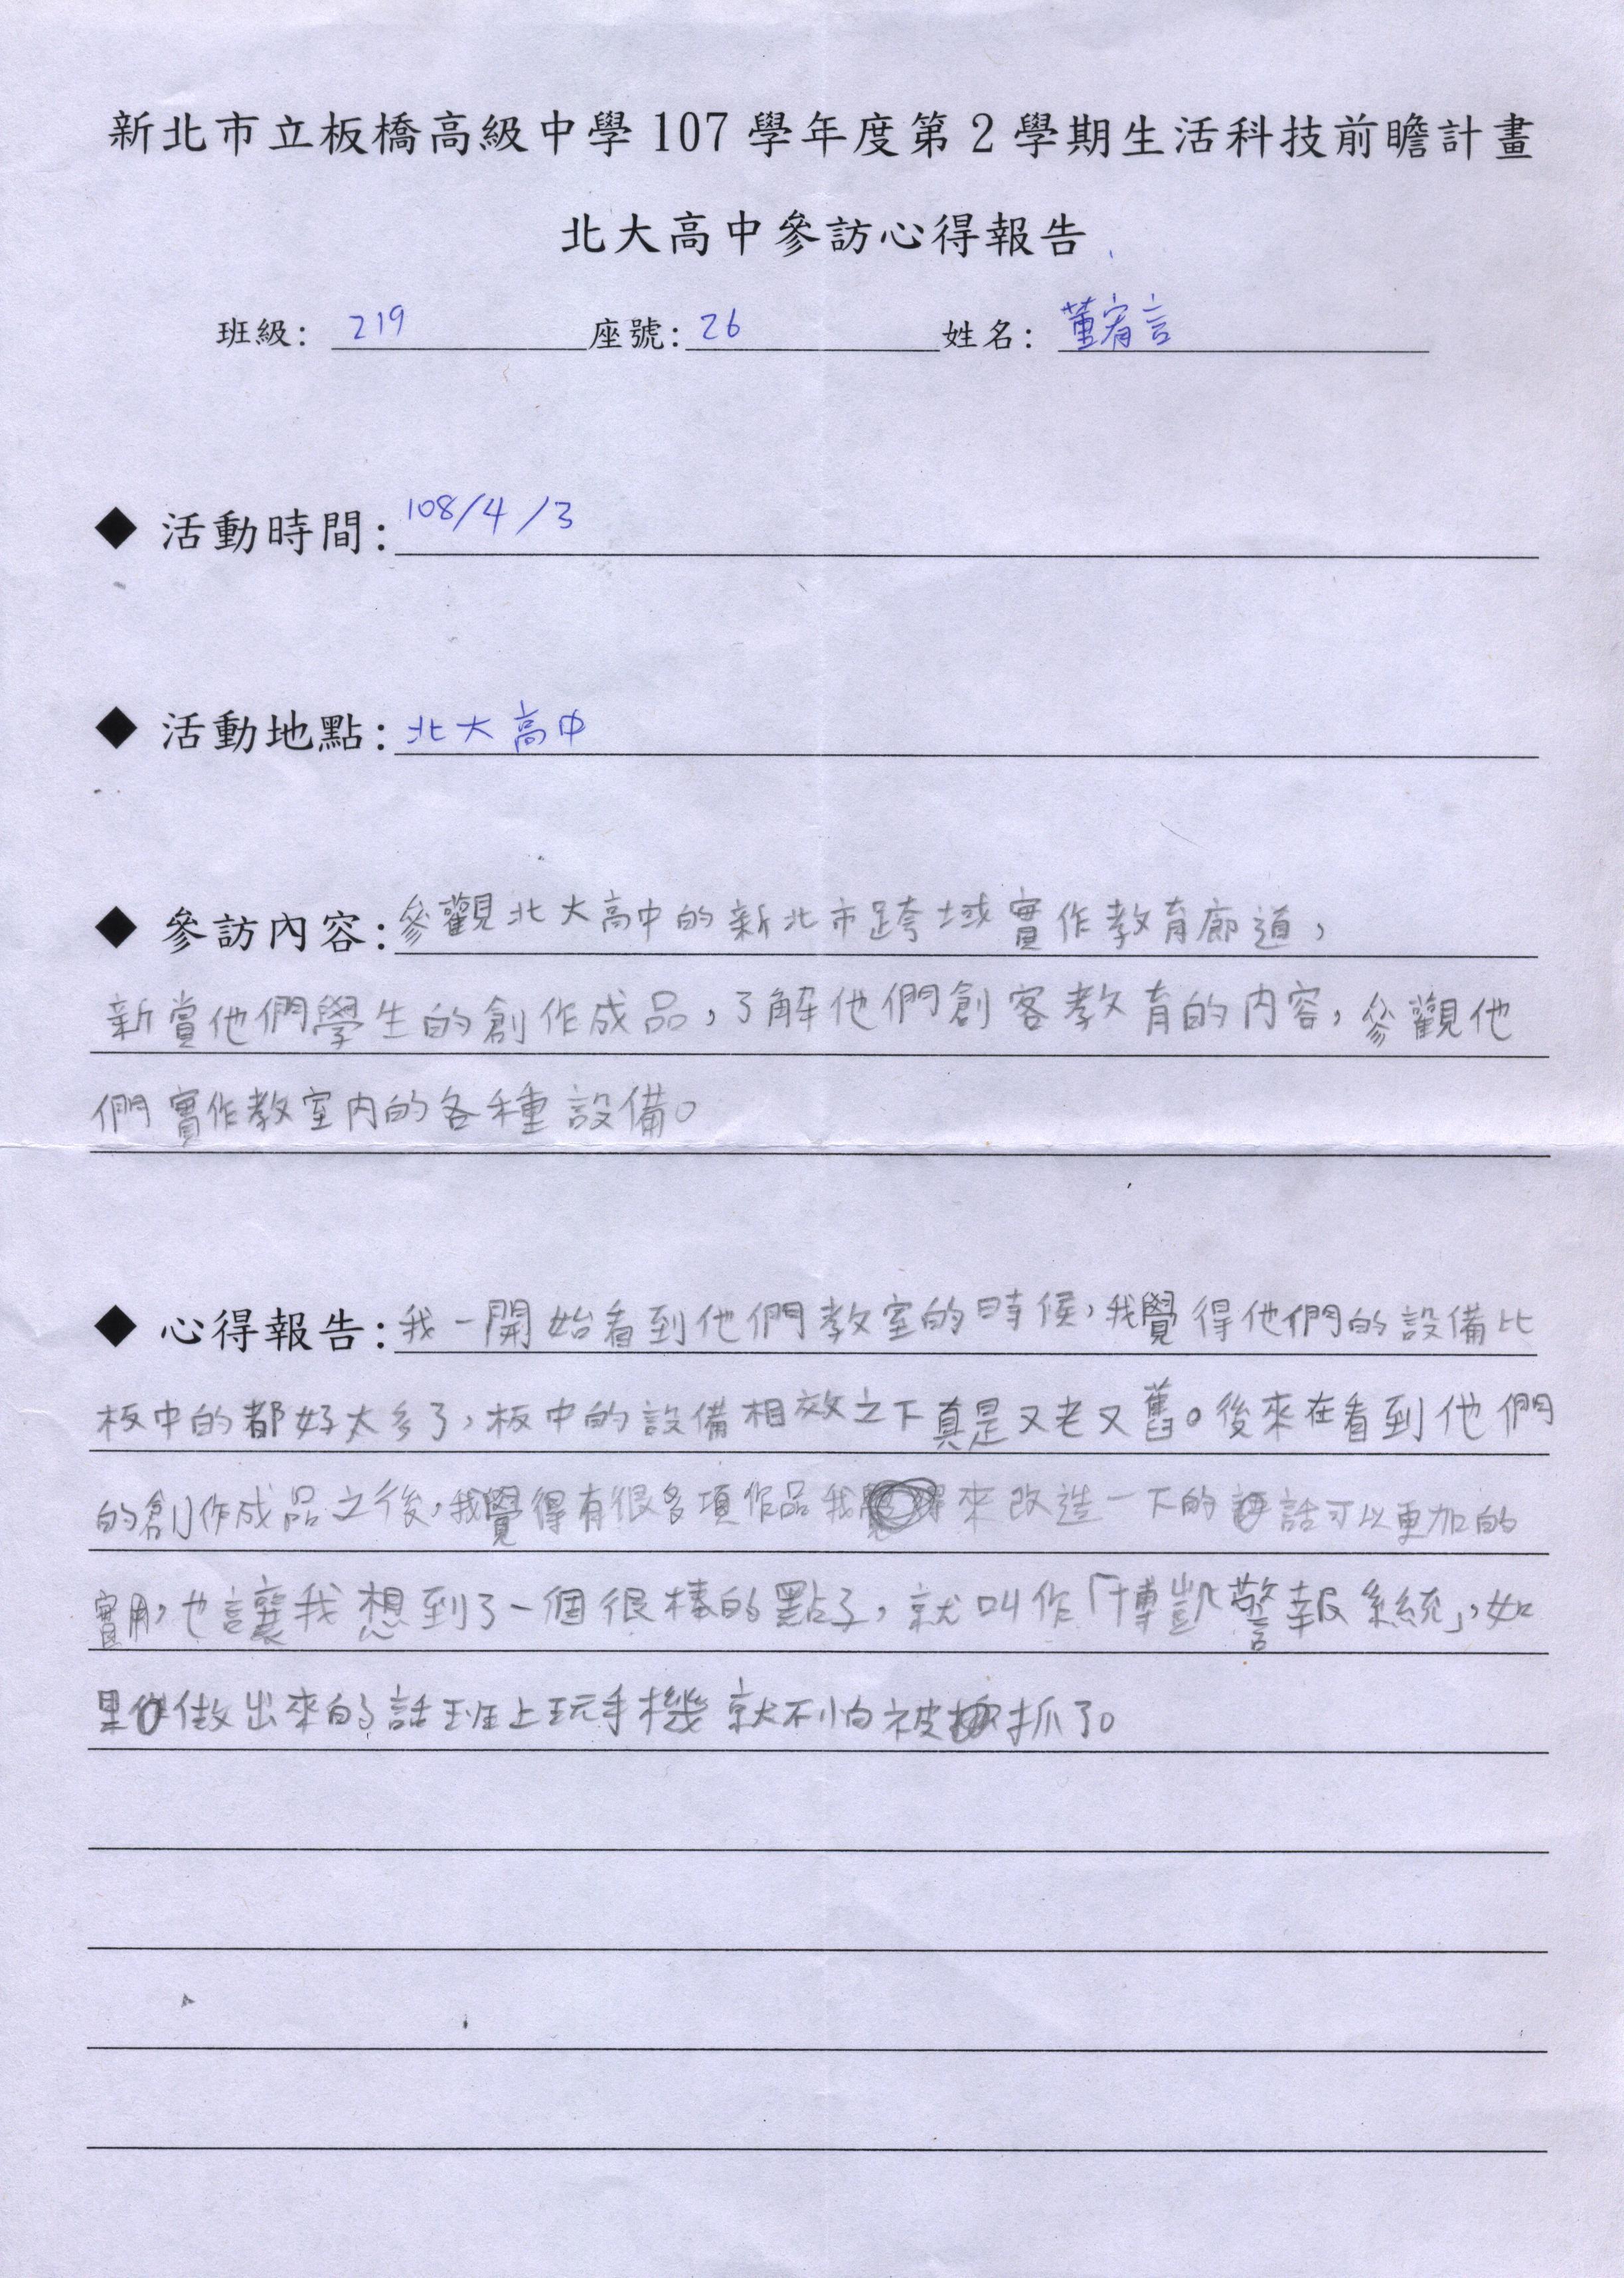 新北市立板橋高級中學 107 學年度第 2 學期生活科技前瞻計畫
北大高中參訪心得報告
班級: 219 座號: 26 姓名: 董宥言
◆ 活動時間: 108/4/3
◆ 活動地點: 北大高中
◆ 參訪內容: 參觀北大高中的新北市跨域實作教育廊道,
新賞他們學生的創作成品,了解他們創客教育的內容,參觀他
們實作教室內的各種設備。
◆ 心得報告: 我一開始看到他們教室的時候,我覺得他們的設備比
板中的都好太多了,板中的設備相效之下真是又老又舊。後來在看到他們
的創作成品之後,我覺得有很多項作品我來改造一下的話可以更加的
實用,也讓我想到了一個很棒的點子,就叫作「博凱警報系統」,如
果做出來的話班上玩手機就不怕被抓了。